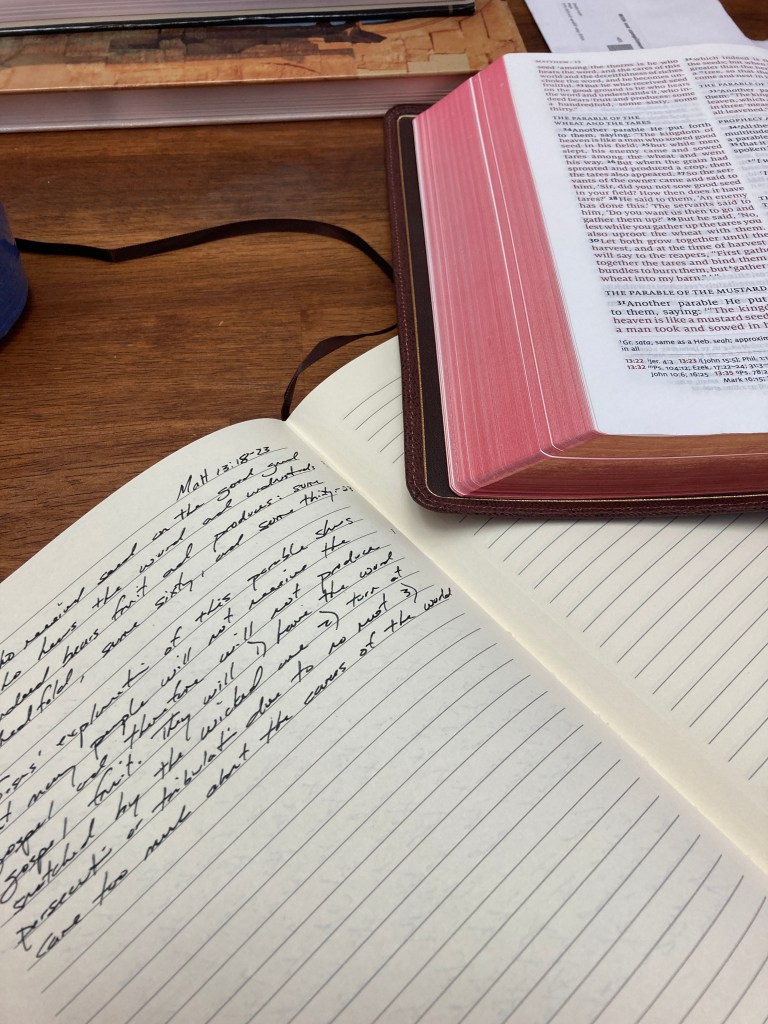 MATTHEW 13
seed among the thorns is he who
hears the word, and the cares of this
world and the deceitfulness of riches
choke the word, and he becomes un-
fruitful. 23But he who received seed
on the good ground is he who hears
the word and understands it, who in-
deed bears fruit and produces: some
a hundredfold, some sixty, some
thirty."
THE PARABLE OF THE
WHEAT AND THE TARES
24Another parable He put forth
to them, saying: "The kingdom of
heaven is like a man who sowed good
seed in his field; 25but while men
slept, his enemy came and sowed
tares among the wheat and went
his way. 26But when the grain had
sprouted and produced a crop, then
the tares also appeared. 27So the ser-
vants of the owner came and said to
him, 'Sir, did you not sow good seed
in your field? How then does it have
tares?' 28He said to them, 'An enemy
has done this.' The servants said to
him, 'Do you want us then to go and
gather them up?' 29But he said, 'No,
lest while you gather up the tares you
also uproot the wheat with them.
30Let both grow together until the
harvest, and at the time of harvest
will say to the reapers, "First gath
together the tares and bind them
bundles to burn them, but gather
wheat into my barn." ' "
THE PARABLE OF THE MUSTARD
31Another parable He put
to them, saying: "The kingd
heaven is like a mustard seed
a man took and sowed in h
Gr. sata, same as a Heb. seah; approxim
in all
13:22 Jer. 4:3 13:23 [John 15:5]; Phil. 1:1
13:32 Ps. 104:12; Ezek. 17:22–24; 31:3
John 10:6; 16:25 13:35 Ps. 78:2
Mark 16:15;
32which indeed is
the seeds; but
greater than the h
a tree, so that the
THE PARABLE OF
33Another para
them: "The king
heaven, which
in three
all leavened.
PROPHECY
34All the
multitude
a parable
35that it
spoken
"I w
Matt 13:18-23
who received seed on the good ground
who hears the word and understands
indeed bears fruit and produces: some
hundredfold, some sixty, and some thirty."
Jesus' explanation of this parable shows
that many people will not receive the
gospel and therefore will not produce
gospel fruit. They will 1) have the word
snatched by the wicked one 2) turn at
persecution or tribulation due to no root 3)
care too much about the cares of the world